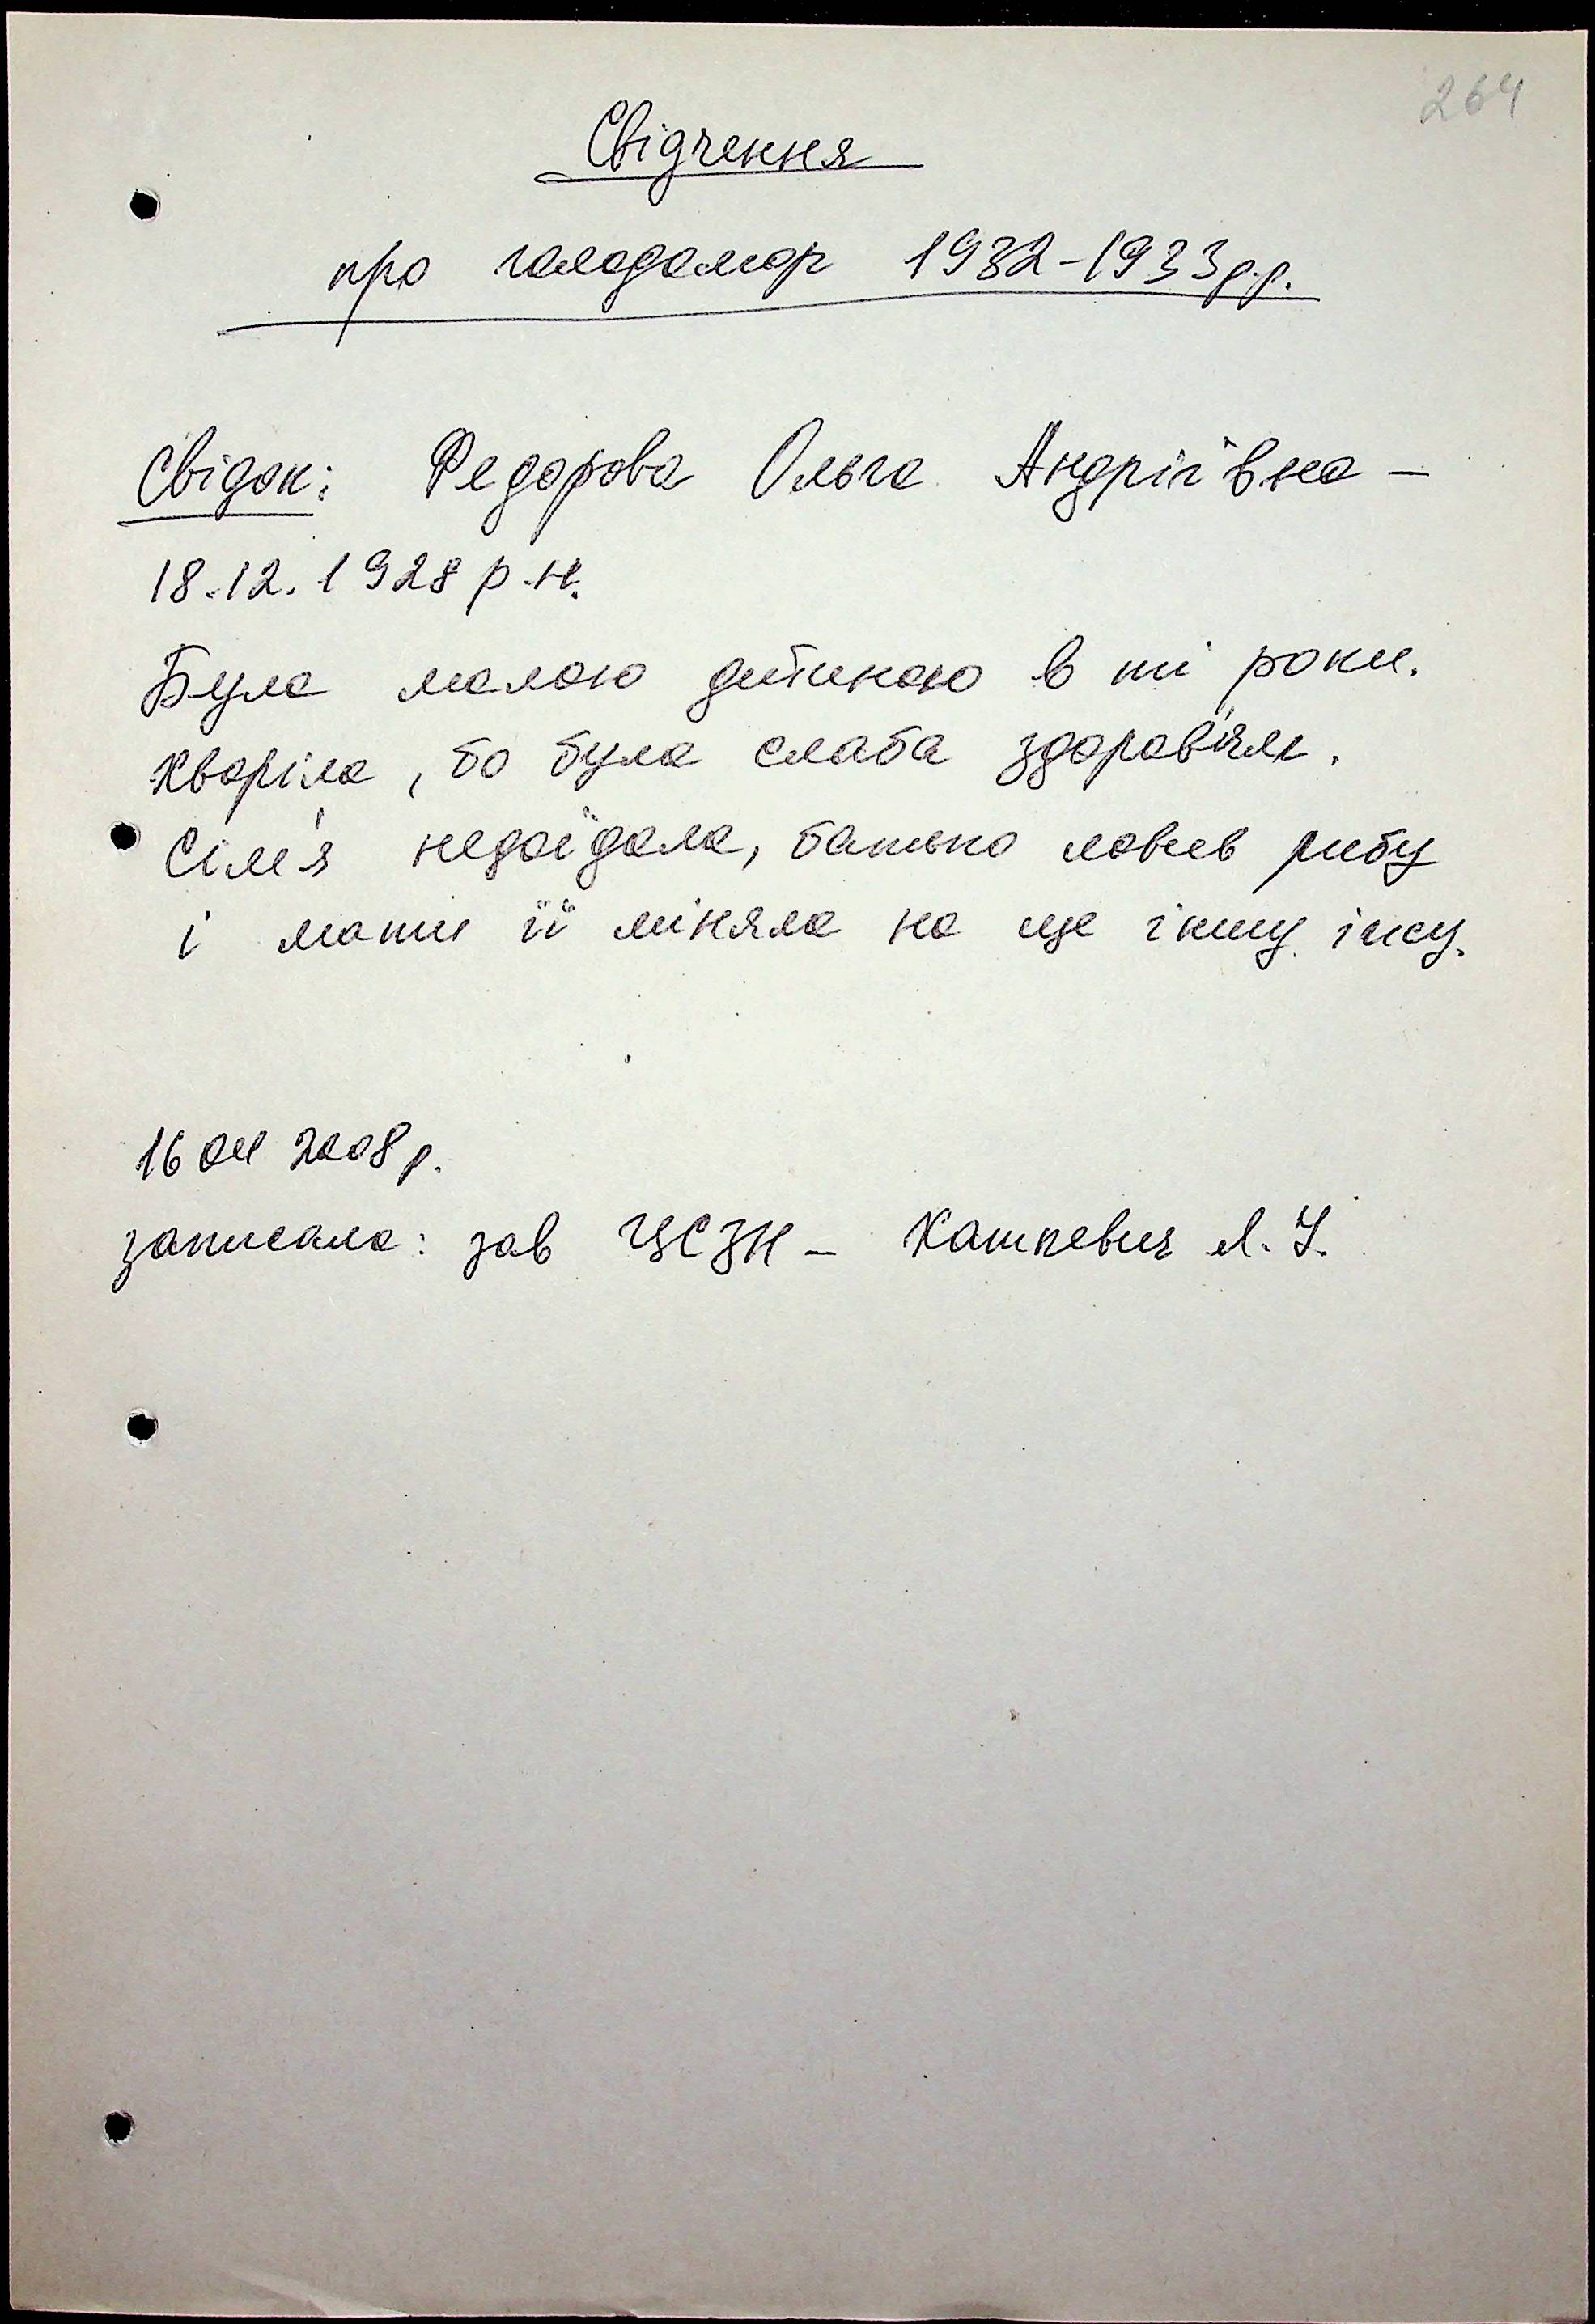 264
Свідчення
про голодомор 1932-1933р.р.
Свідок: Федорова Ольга Андріївна –
18.12.1928 р.н.
Була малою дитиною в ті роки.
Хворіла, бо була слаба здоров'ям.
Сім'я недоїдала, батько ловив рибу
і мати її міняла на ще іншу їжу.
16 04 2008 р.
записала: зав ЦСЗН – Кашкевич Л. У.